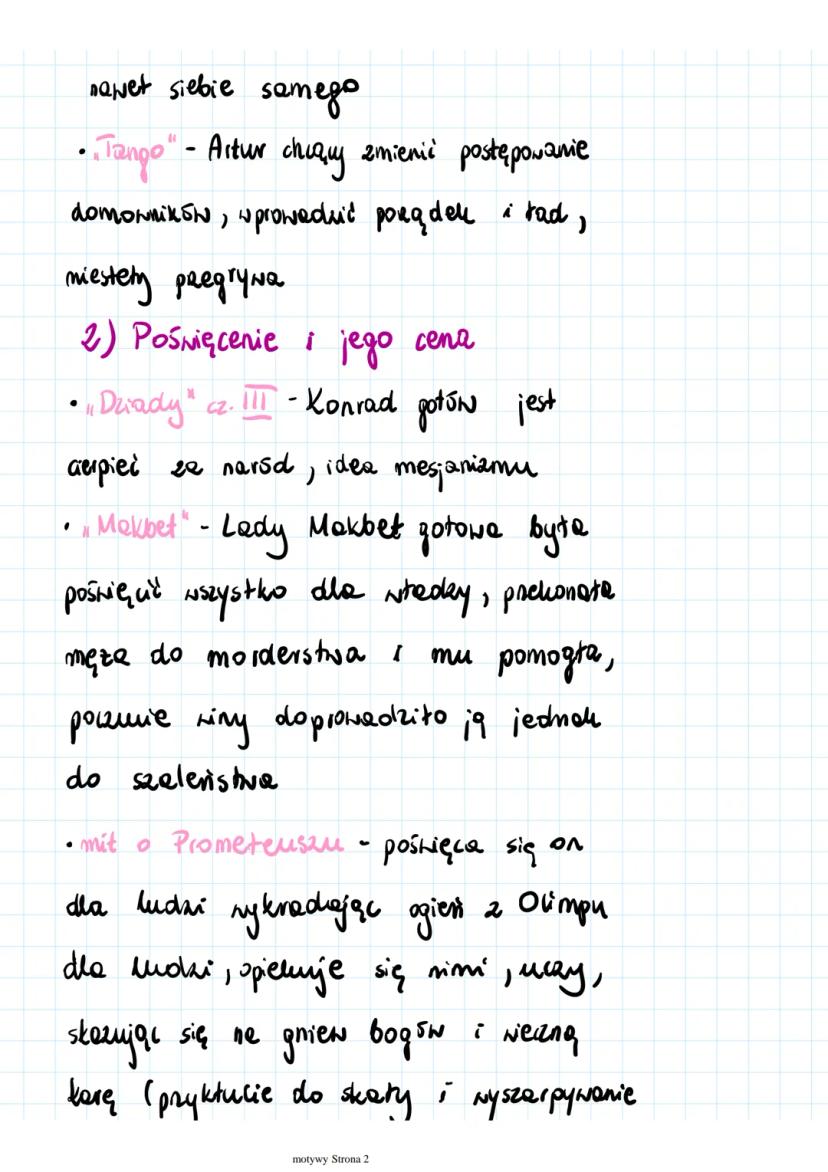 nawet siebie samego
• „Tango" - Artur chcący zmienić postępowanie
domowników, wprowadzić porządek i ład,
niestety przegrywa
2) Poświęcenie i jego cena
• „Dziady" cz. III - Konrad gotów jest
cierpieć za naród, idea mesjanizmu
• „Makbet" - Lady Makbet gotowa była
poświęcić wszystko dla władzy, przekonała
męża do morderstwa i mu pomogła,
poczucie winy doprowadziło ją jednak
do szaleństwa
• mit o Prometeuszu - poświęca się on
dla ludzi wykradając ogień z Olimpu
dla ludzi, opiekuje się nimi, uczy,
skazując się na gniew bogów i wieczną
karę (przykłucie do skały i wyszarpywanie
motywy Strona 2